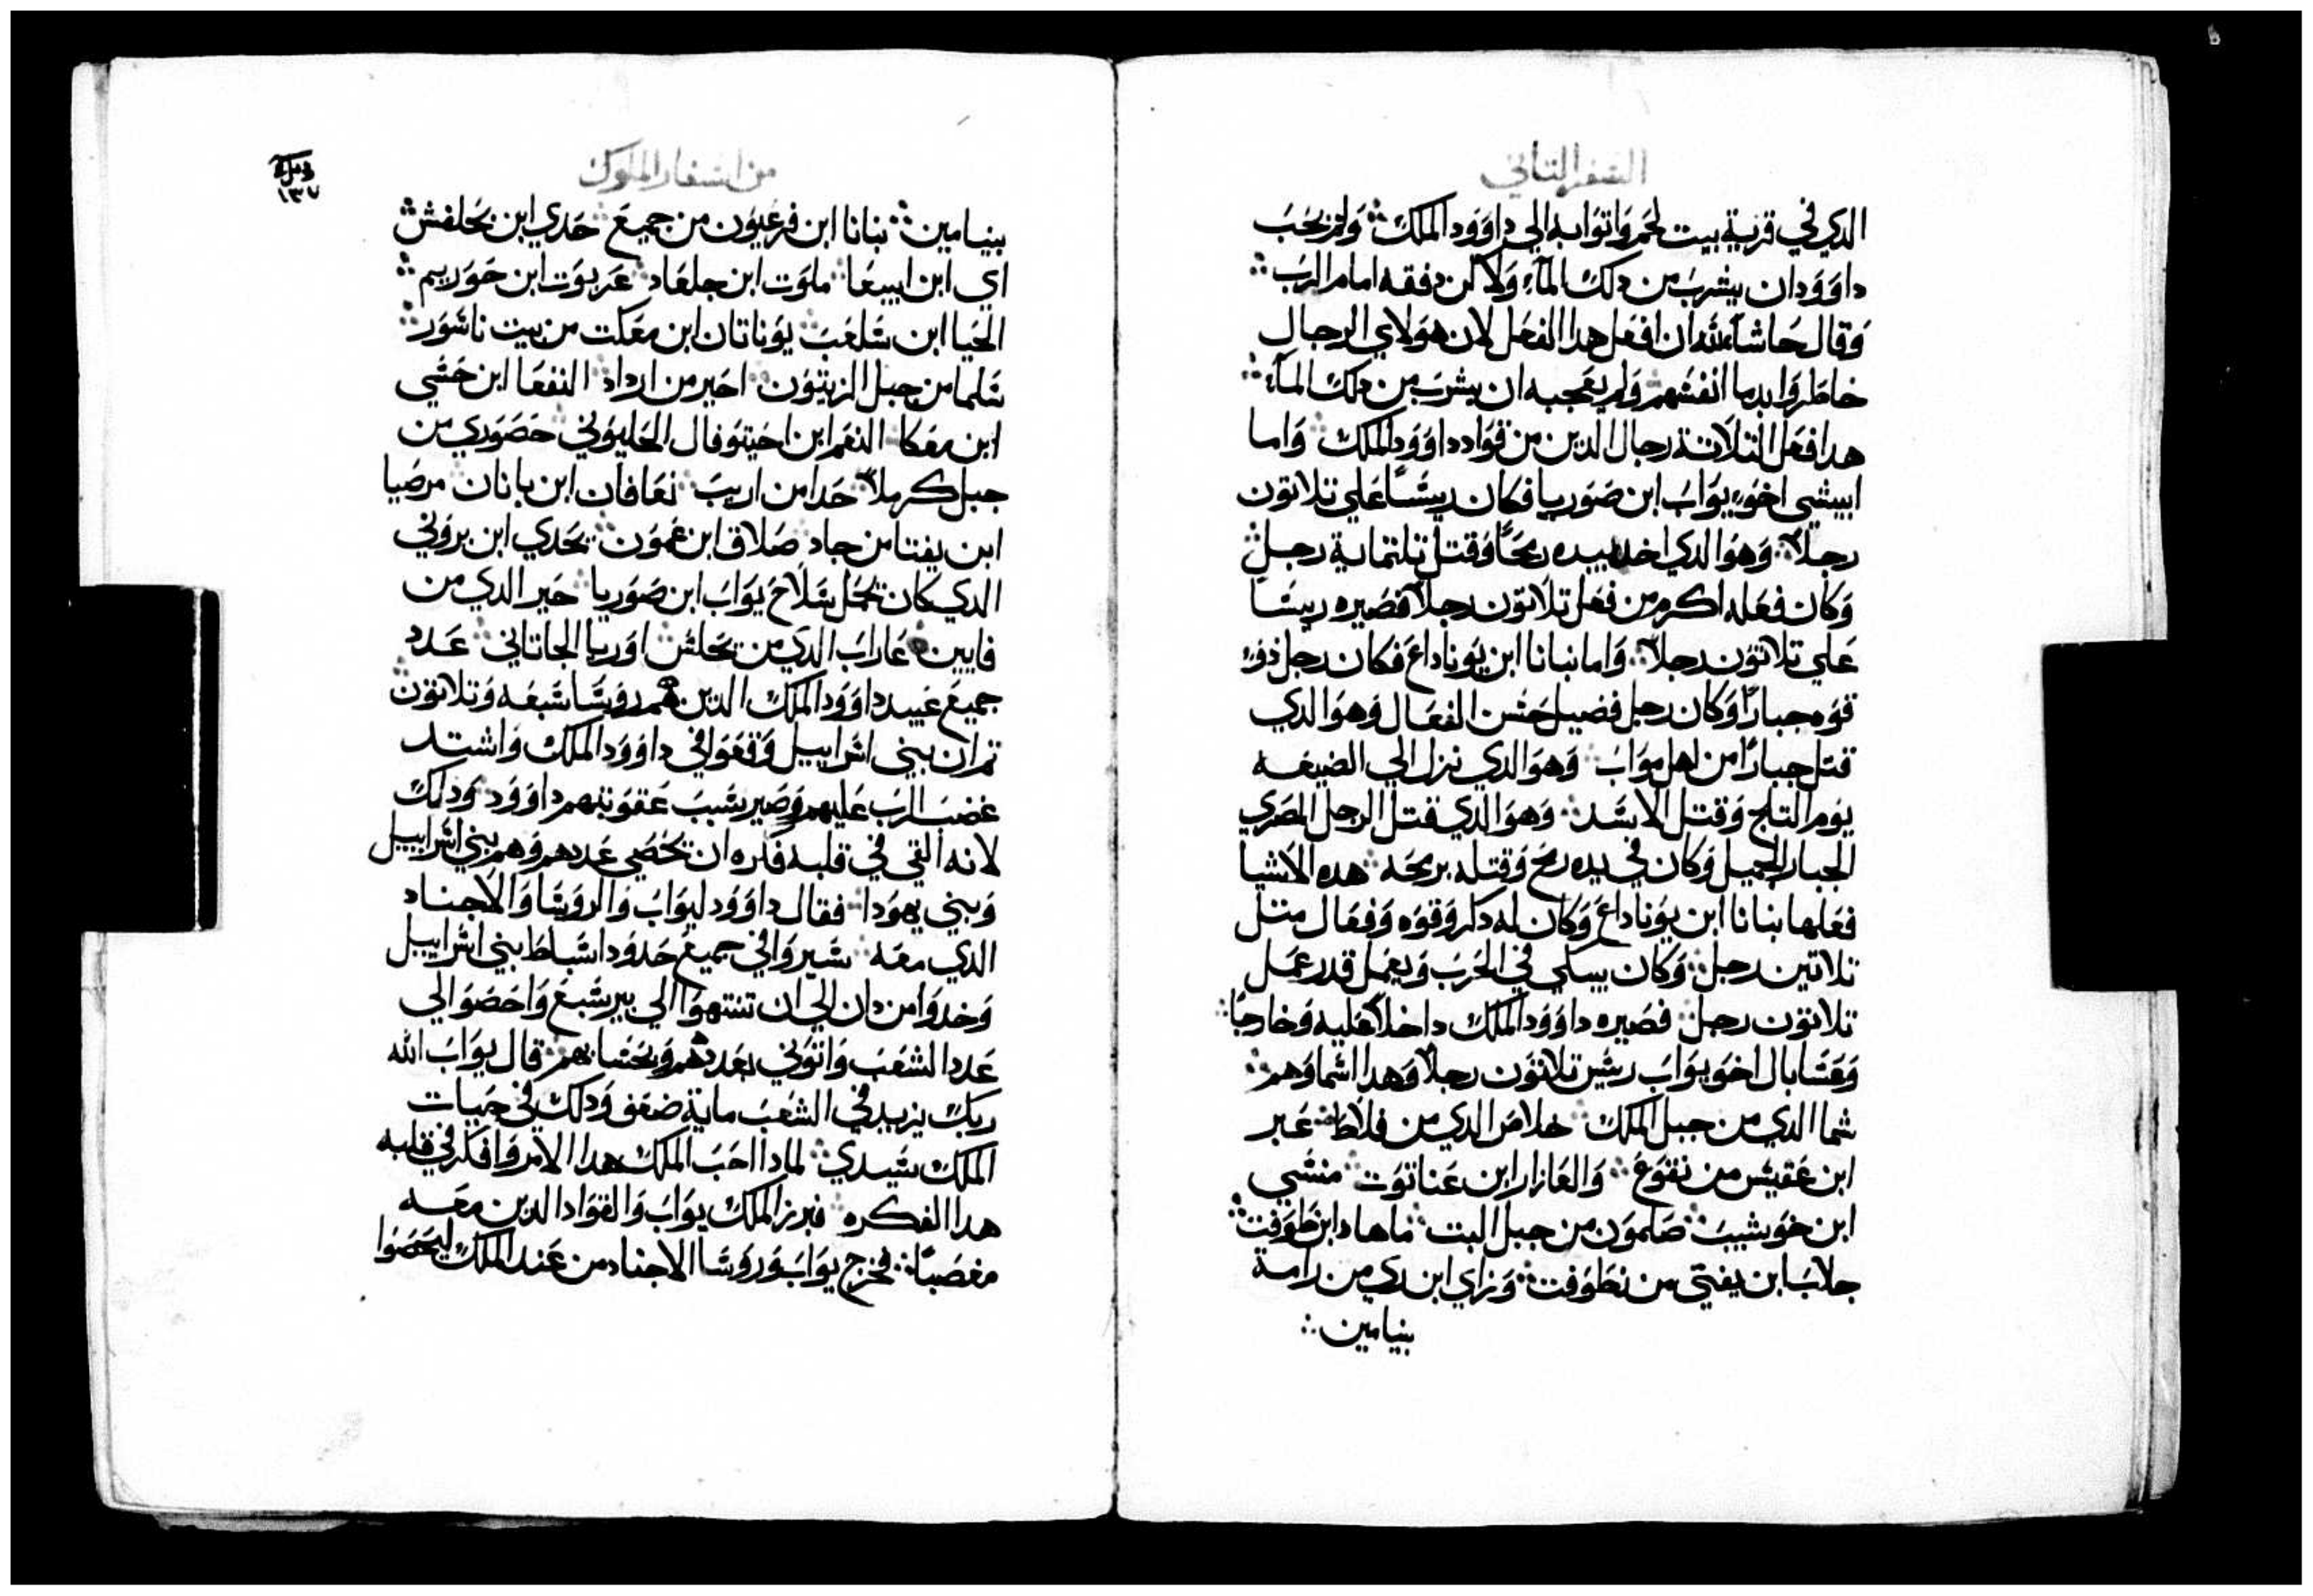 السفر التاني
الدي في قرية بيت لحم واتوا به الي داوود الملك ولم يحب
داوود ان يشرب من دلك الماء ولاكن دفقه امام الرب
وقال حاشا لله ان افعل هدا الفعل لان هولاي الرجال
خاطروا بدما انفسهم ولم يعجبه ان يشرب من دلك الماء
هدا فعل التلاتة رجال الدين من قواد داوود الملك واما
ابيشي اخو يواب ابن صوريا فكان ريسا علي تلاتون
رجلا وهو الدي اخد بيده رمحا وقتل تلتماية رجل
وكان فعله اكرم من فعل تلاتون رجلا فصيره ريسا
علي تلاتون رجلا واما نبانا ابن يوناداع فكان رجل دو
قوه جبارا وكان رجل فضيل حسن الفعال وهو الدي
قتل جبارا من اهل مواب وهو الدي نزل الي الضيعه
يوم التلج وقتل الاسد وهو الدي قتل الرجل المصري
الجبار الجميل وكان في يده رمح وقتله برمحه هده الاشيا
فعلها بنانا ابن يوناداع وكان له دكر وقوه وفعال متل
تلاتين رجل وكان يبلي في الحرب ويعمل قدر عمل
تلاتون رجل فصيره داوود الملك داخلا عليه وخارجا
وعسابال اخو يواب ريس تلاتون رجلا وهدا اسماوهم
شما الدي من جبل الملك حلاص الدي من فلاط عبر
ابن عقيس من نقوع والعازار ابن عناتوت منسي
ابن خوشيب صلمون من جبل البت ماهاد ابن طوفت
جلاب ابن يفتي من نطوفت وزاي ابن ري من رامة
بنيامين
من اسفار الملوك
١٣٧
بنيامين بنانا ابن فرعيون من جميع حدي ابن نحلفس
اي ابن ابيعا ملوت ابن جلعاد عربوت ابن حوريم
الحيا ابن سلعب يوناتان ابن معكت من بيت ناشور
سلما من جبل الزيتون احير من اراد النفعا ابن حسي
ابن معكا النعم ابن احيتوفال الحليوني حصوري من
جبل كرملا حدا من اريب نعافان ابن بانان مرصيا
ابن يفتا من جاد صلاق ابن عمون يحدي ابن بروني
الدي كان يحمل سلاح يواب ابن صوريا حير الدي من
فايين عاراب الدي من نحلس اوريا الجاتاني عدد
جميع عبيد داوود الملك الدين هم روسا سبعه وتلاتون
تم ان بني اسراييل وقعوا في داوود الملك واشتد
غضب الرب عليهم وصير سبب عقوبتهم داوود ودلك
لانه القي في قلبه فكره ان يحصي عددهم وهم بني اسراييل
وبني يهودا فقال داوود ليواب والروسا والاجناد
الدي معه سيروا في جميع حدود اسباط بني اسراييل
وخدوا من دان الي ان تنتهوا الي بير سبع واحصوا لي
عدد الشعب واتوني بعددهم وبحسابهم قال يواب الله
ربك يزيد في الشعب ماية ضعف ودلك في حيات
الملك سيدي لمادا احب الملك هدا الامر وافكر في قلبه
هدا الفكره فبرز الملك يواب والقواد الدين معه
مغصبا فخرج يواب وروسا الاجناد من عند الملك ليحصوا